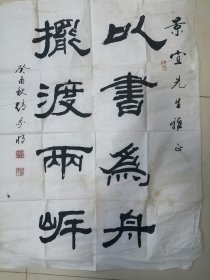 景宜先生雅正
以書為舟
擺渡兩岸
癸酉秋